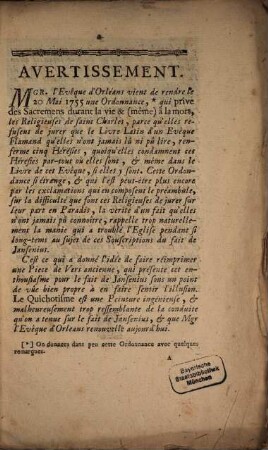 AVERTISSEMENT.
MGR. l'Evêque d'Orléans vient de rendre le
20 Mai 1755 une Ordonnance, * qui prive
des Sacremens durant la vie & (même) à la mort,
les Religieuses de saint Charles, parce qu'elles re-
fusent de jurer que le Livre Latin d'un Evêque
Flamand qu'elles n'ont jamais lû ni pû lire, ren-
ferme cinq Hérésies, quoiqu'elles condamnent ces
Hérésies par-tout où elles sont, & même dans le
Livre de cet Evêque, si elles y sont. Cette Ordon-
dance si étrange, & qui l'est peut-être plus encore
par les exclamations qui en composent le préambule,
sur la difficulté que font ces Religieuses de jurer sur
leur part en Paradis, la vérité d'un fait qu'elles
n'ont jamais pû connoître, rappelle trop naturelle-
ment la manie qui a troublé l'Eglise pendant si
long-tems au sujet de ces Souscriptions du fait de
Jansénius.
C'est ce qui a donné l'idée de faire réimprimer
une Piece de Vers ancienne, qui présente cet en-
thousiasme pour le fait de Jansénius sous un point
de vûe bien propre à en faire sentir l'illusion.
Le Quichotisme est une Peinture ingénieuse, &
malheureusement trop ressemblante de la conduite
qu'on a tenue sur le fait de Jansénius, & que Mgr
l'Evêque d'Orléans renouvelle aujourd'hui.
[*] On donnera dans peu cette Ordonnance avec quelques
remarques.
A
Bayerische
Staatsbibliothek
München